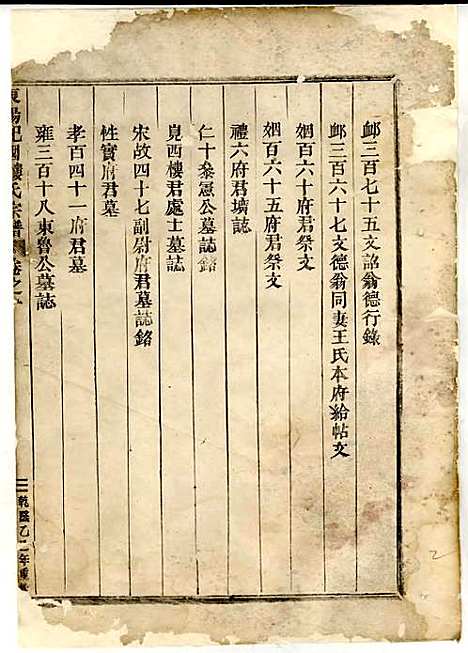 卹三百七十五文諮翁德行錄
卹三百六十七文德翁同妻王氏本府給帖文
姻百六十府君祭文
姻百六十五府君祭文
禮六府君壙誌
仁十叅憲公墓誌銘
覓西樓君處士墓誌
宋故四十七副尉府君墓誌銘
性實府君墓
孝百四十一府君墓
雍三百十八東魯公墓誌
東陽杞國樓氏宗譜 卷之
乾隆乙 年重
2